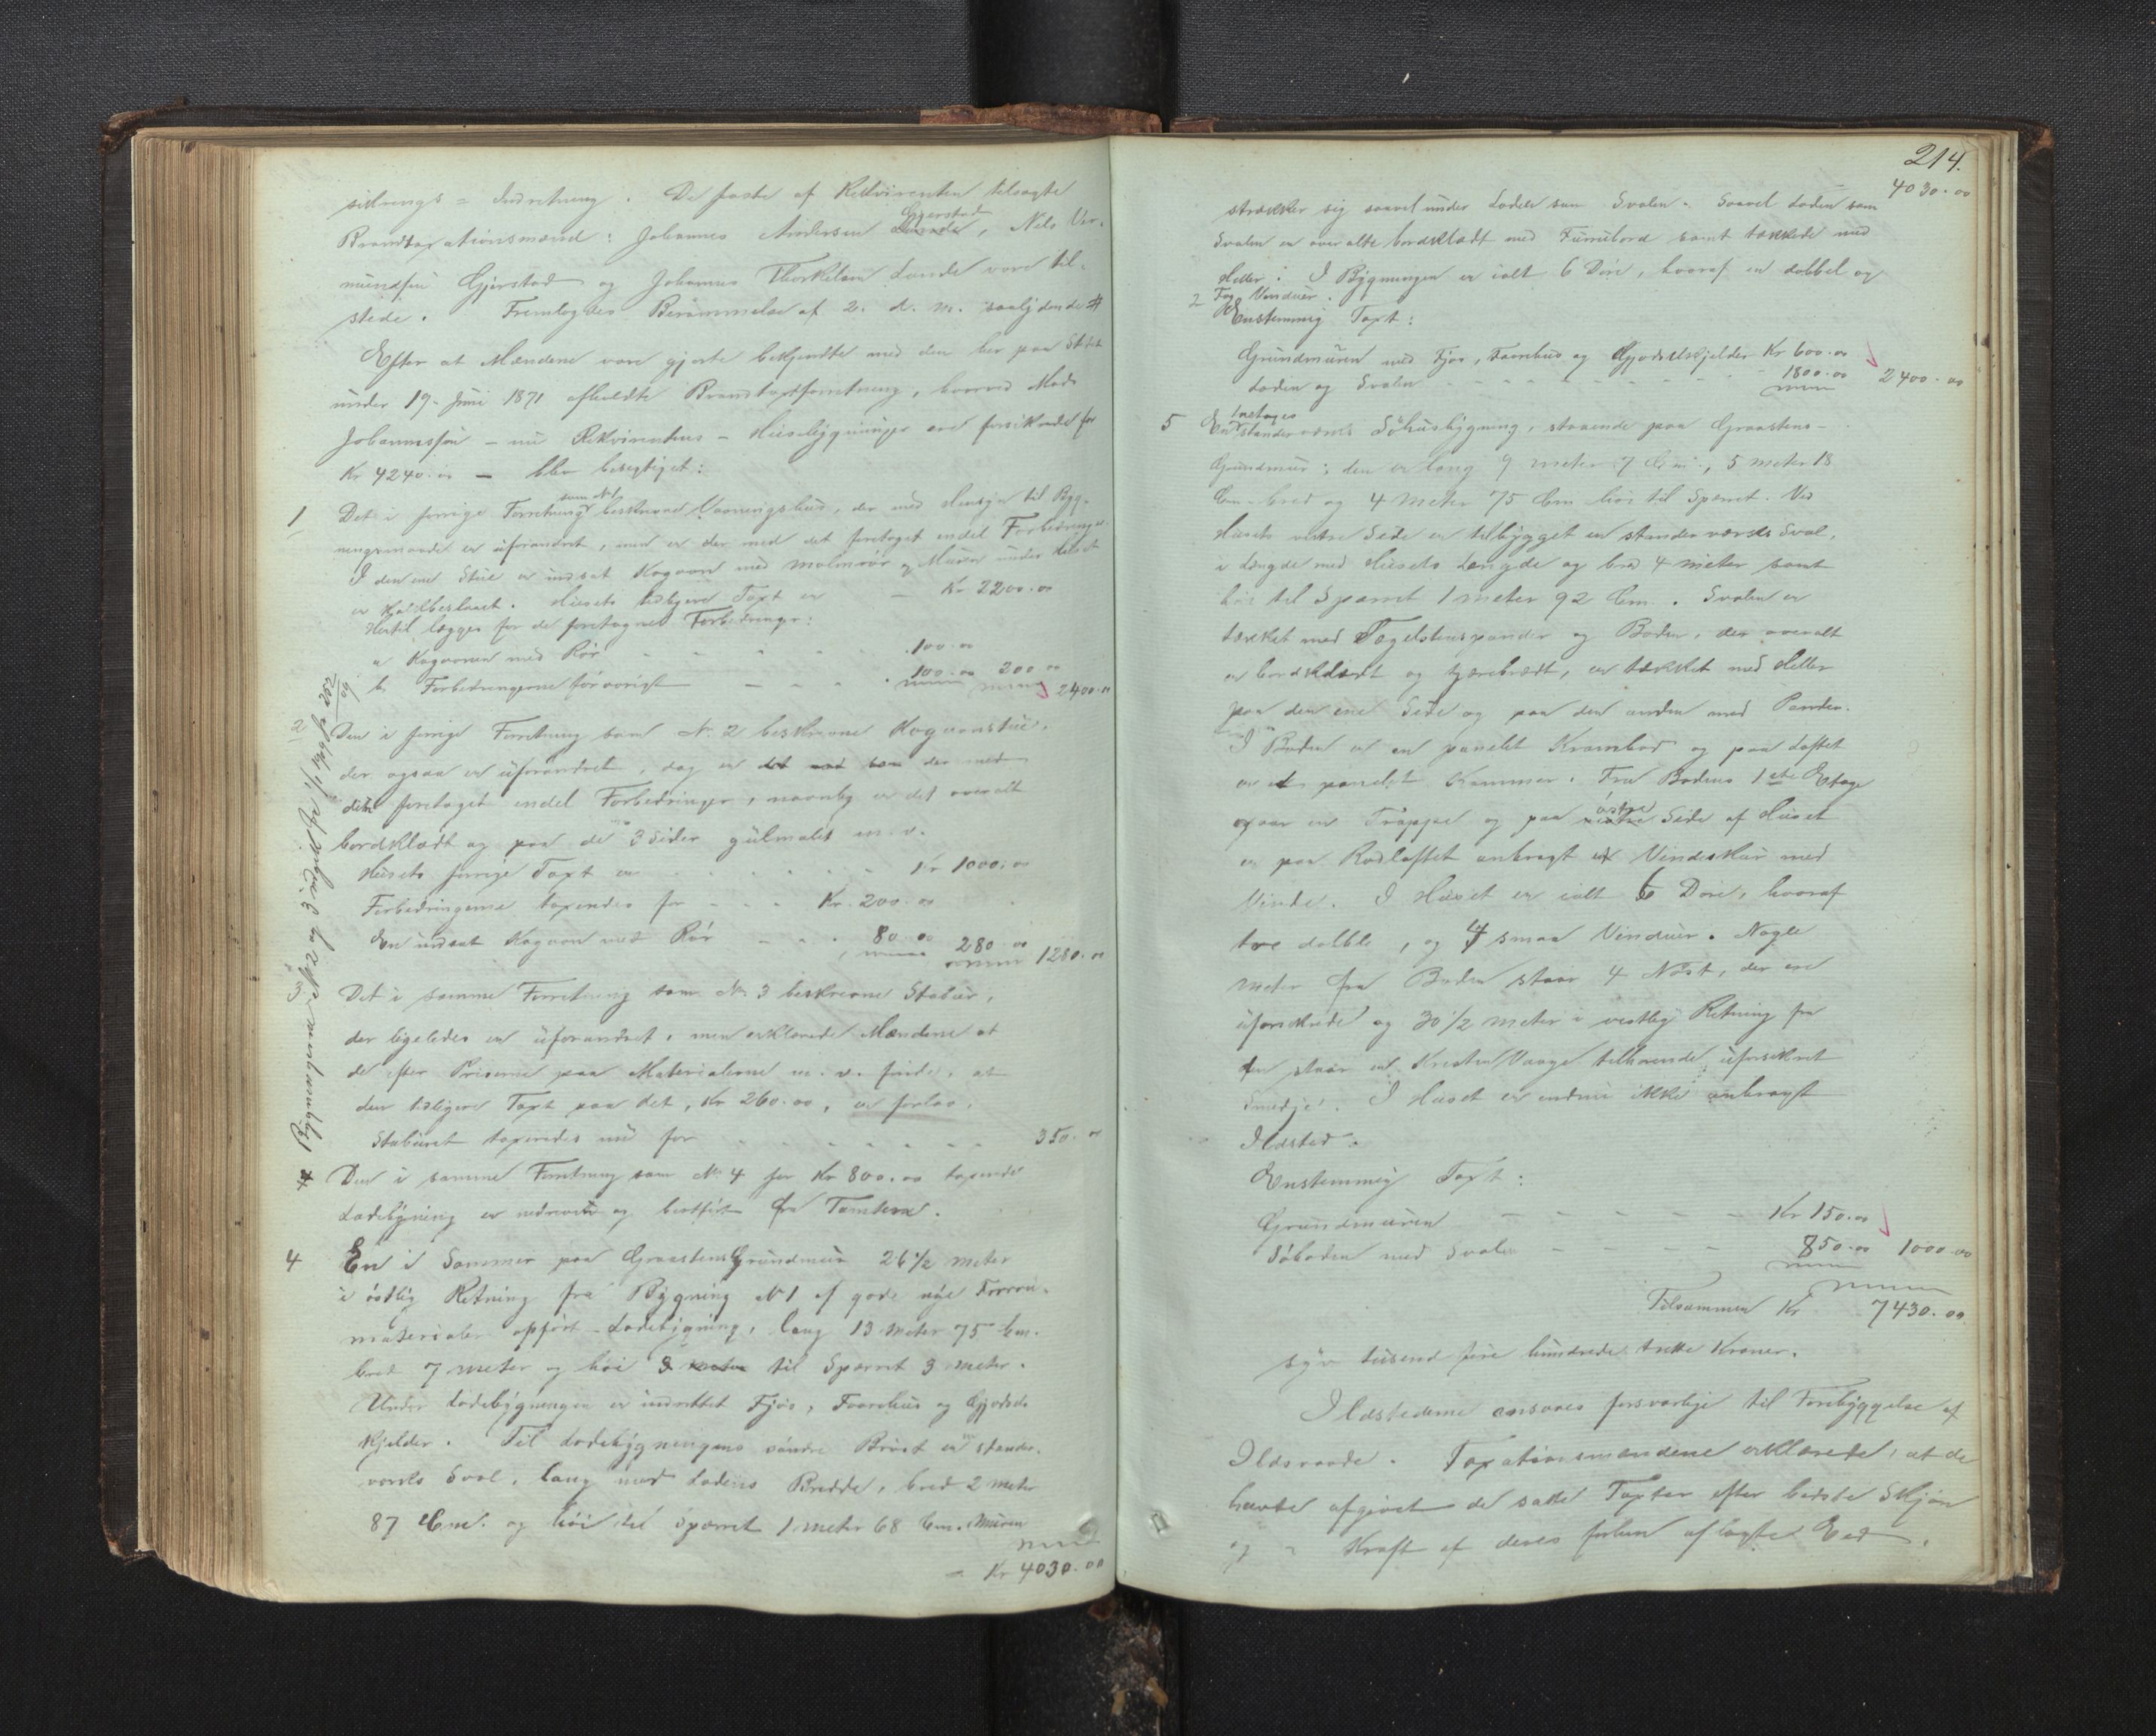 sikrings-Indretning. De faste af Rekvirenten tilsagte
Brandtaxationsmænd: Johannes Andersen Lunde Gjerstad, Nels Ver-
mundsen Gjerstad og Johannes Thorkelsen Lunde vare til-
stede. Fremlagdes Berammelse af 2. d. m. saalydende #
Efter at Mændene vare gjorte bekjendte med den her paa Stedet
under 19. Juni 1871 afholdte Brandtaxtforretning, hvorved Mads
Johannessen – nu Rekvirentens – Husebygninger ere forsikrede for
Kr 4240.00 – blev besigtiget:
1 Det i forrige Forretning som N1 beskrevne Vaaningshus, der med Hensyn til Byg-
ningsmaade er uforandret, men er der med det foretaget endel Forbedringer.
I den ene Stue er indsat Kogovn med malmrör og Muren under Huset
er Kalkbeslaaet. Husets tidligere Taxt er – Kr 2200.00
Hertil lægges for de foretagne Forbedringer:
a Kogovnen med Rör - - - - 100.00
b Forbedringerne forövrigt - - - 100.00 200.00
2400.00
2 Den i forrige Forretning som No 2 beskrevne Kogovnstue,
der ogsaa er uforandret, dog er det med som der med
den foretaget endel Forbedringer, navnlig er det overalt
bordklædt og paa de 3 Sider gulmalet m.v.
Husets forrige Taxt er - - - - - Kr 1000.00
Forbedringerne taxeredes for - - - Kr. 200.00
En indsat Kogovn med Rör - - - 80.00 280.00 1280.00
3 Det i samme Forretning som No 3 beskrevne Stabur,
der ligeledes er uforandret, men erklærede Mændene at
de efter Priserne paa Materialerne m.v. finde, at
den tidligere Taxt paa det, Kr 260.00, er for lav.
Staburet taxeredes nu for - - - - - - - 350.00
Den i samme Forretning som No 4 for Kr 800.00 taxerede
Ladebygning er nedrevet og bortfört fra Tomten.
4 En i Sommer paa Graastens Grundmur 26 1/2 meter
i östlig Retning fra Bygning N 1 af gode nye Furru-
materialer opfört Ladebygning, lang 13 meter 75 Cm.
bred 7 meter og höi 3 meter til Sparret 3 meter.
Under Ladebygningen er indrettet Fjös, Faarehus og Gjödsels
kjelder. Til Ladebygningens söndre Bröst er en stander-
værks Sval, lang med Ladens Bredde, bred 2 meter
87 Cm. og höi til Sparret 1 meter 68 Cm. Muren
– Kr 4030.00
214.
4030.00
strækker sig saavel under Laden som Svalen. Saavel Laden som
Svalen er overalt bordklædt med Furrubord samt tækkede med
Heller. I Bygningen er ialt 6 Döre, hvoraf en dobbel og
2 Fag Vinduer.
Enstemmig Taxt:
Grundmuren med Fjös, Faarehus og Gjödselskjelder Kr 600.00
Laden og Svalen - - - - - - - - - 1800.00 2400.00
5 En 1 etages standerværks Söhusbygning, staaende paa Graastens-
Grundmur; den er lang 9 meter 7 Cm., 5 meter 18
Cm. bred og 4 meter 75 Cm höi til Sparret. Ved
Husets vestre Side er tilbygget en standerværks Sval,
i Längde med Husets Længde og bred 4 meter samt
höi til Sparret 1 meter 92 Cm. Svalen er
tækket med Tegelstenspander og Boden, der overalt
er bordklædt og tjærebrædt, er tækket med Heller
paa den ene Side og paa den anden med Pander.
I Boden er en panelet Krambod og paa Loftet
er et panelet Kammer. Fra Bodens 1ste Etage
gaar en Trappe og paa vestre östre Side af Huset
er paa Rodloftet anbragt et Vindeskur med
Vinde. I Huset er ialt 6 Döre, hvoraf
tve dobble, og 4 smaa Vinduer. Nogle
meter fra Boden staar 4 Nöst, der ere
uforsikrede og 30 1/2 meter i vestlig Retning fra
den staar en Kristen Vaage tilhörende uforsikret
Smedje. I Huset er endnu ikke anbragt
Ildsted.
Enstemmig Taxt:
Grundmuren - - - - - - Kr 150.00
Söboden med Svalen - - - - 850.00 1000.00
Tilsammen Kr 7430.00
syv tusend fire hundrede trette Kroner.
Ildstederne ansaaes forsvarlige til Forebyggelse af
Ildsvaade. Taxationsmændene erklærede, at de
havde afgivet de satte Taxter efter bedste Skjön
og i Kraft af deres forhen aflagte Eed.